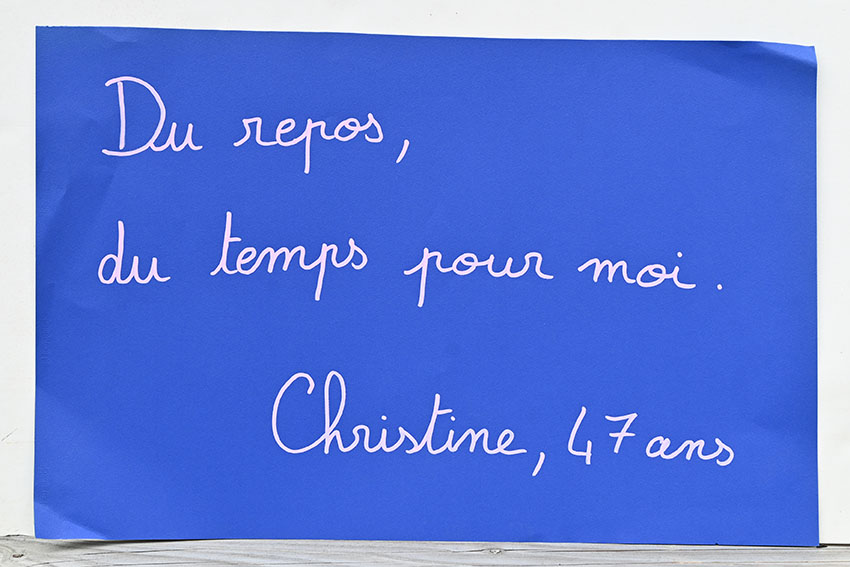 Du repos,
du temps pour moi.
Christine, 47 ans